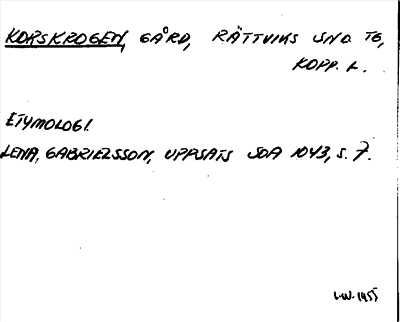 KORSKROGEN, GÅRD, RÄTTVIKS SND. TG,
KOPP. L.
ETYMOLOGI.
LENA, GABRIELSSON, UPPSATS SOA 1043, S. 7.